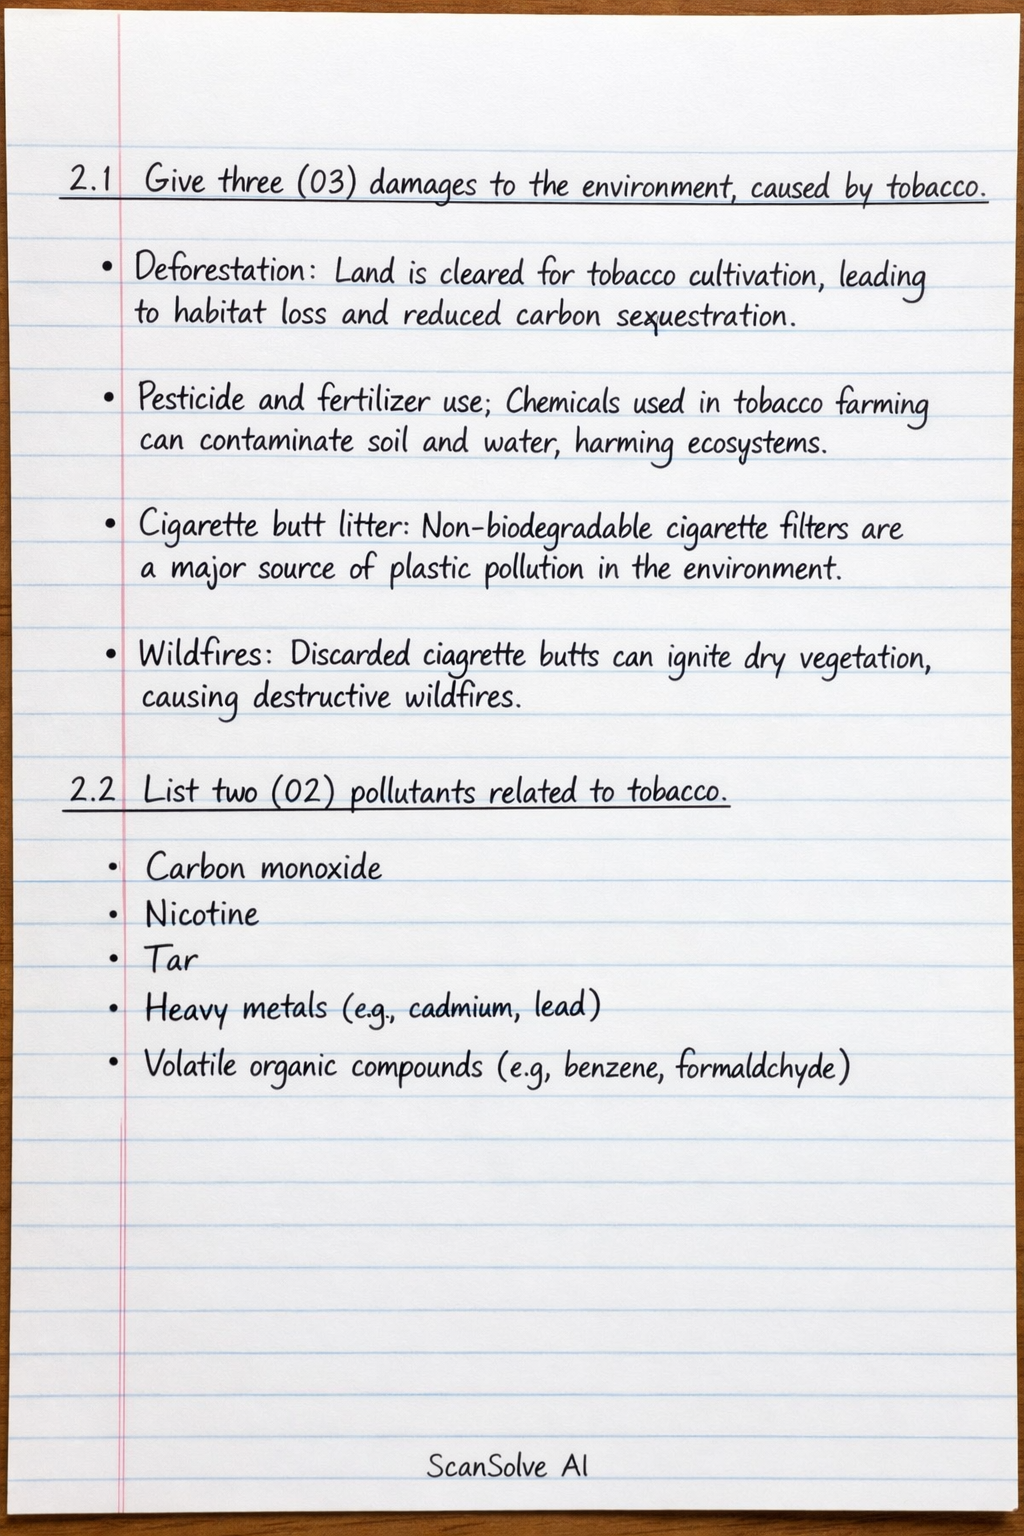 2.1 Give three (03) damages to the environment, caused by tobacco.
• Deforestation: Land is cleared for tobacco cultivation, leading
to habitat loss and reduced carbon sexuestration.
• Pesticide and fertilizer use; Chemicals used in tobacco farming
can contaminate soil and water, harming ecosystems.
• Cigarette butt litter: Non-biodegradable cigarette filters are
a major source of plastic pollution in the environment.
• Wildfires: Discarded ciagrette butts can ignite dry vegetation,
causing destructive wildfires.
2.2 List two (02) pollutants related to tobacco.
• Carbon monoxide
• Nicotine
• Tar
• Heavy metals (e.g., cadmium, lead)
• Volatile organic compounds (e.g, benzene, formaldchyde)
ScanSolve AI